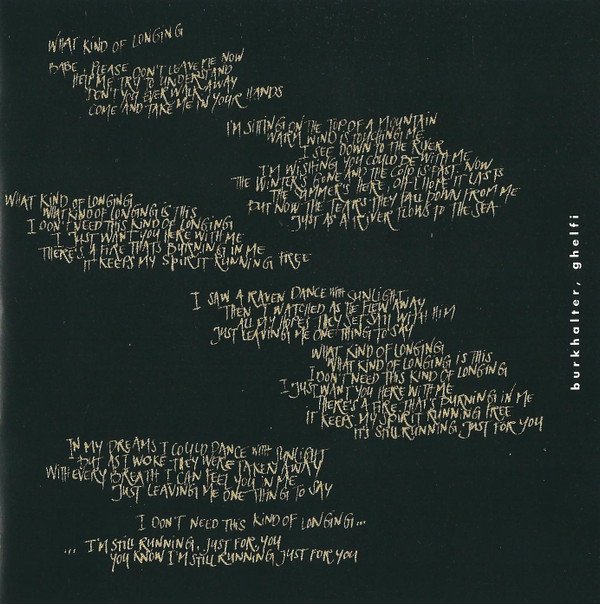 WHAT KIND OF LONGING
BABE, PLEASE DON'T LEAVE ME NOW
HELP ME TRY TO UNDERSTAND
DON'T YOU EVER WALK AWAY
COME AND TAKE ME IN YOUR HANDS
I'M SITTING ON THE TOP OF A MOUNTAIN
WARM WIND IS TOUCHING ME
I SEE DOWN TO THE RIVER
I'M WISHING YOU COULD BE WITH ME
THE WINTER'S GONE AND THE COLD IS PAST, NOW
THE SUMMER'S HERE, OH I HOPE IT LASTS
BUT NOW THE TEARS THEY FALL DOWN FROM ME
JUST AS A RIVER FLOWS TO THE SEA
WHAT KIND OF LONGING
WHAT KIND OF LONGING IS THIS
I DON'T NEED THIS KIND OF LONGING
I JUST WANT YOU HERE WITH ME
THERE'S A FIRE THAT'S BURNING IN ME
IT KEEPS MY SPIRIT RUNNING FREE
I SAW A RAVEN DANCE WITH SUNLIGHT
THEN I WATCHED AS HE FLEW AWAY
ALL MY HOPES THEY SET SAIL WITH HIM
JUST LEAVING ME ONE THING TO SAY
WHAT KIND OF LONGING
WHAT KIND OF LONGING IS THIS
I DON'T NEED THIS KIND OF LONGING
I JUST WANT YOU HERE WITH ME
THERE'S A FIRE THAT'S BURNING IN ME
IT KEEPS MY SPIRIT RUNNING FREE
IT'S STILL RUNNING, JUST FOR YOU
IN MY DREAMS I COULD DANCE WITH SUNLIGHT
BUT AS I WOKE THEY WERE TAKEN AWAY
WITH EVERY BREATH I CAN FEEL YOU IN ME
JUST LEAVING ME ONE THING TO SAY
I DON'T NEED THIS KIND OF LONGING...
... I'M STILL RUNNING, JUST FOR YOU
YOU KNOW I'M STILL RUNNING JUST FOR YOU
burkhalter, ghelfi